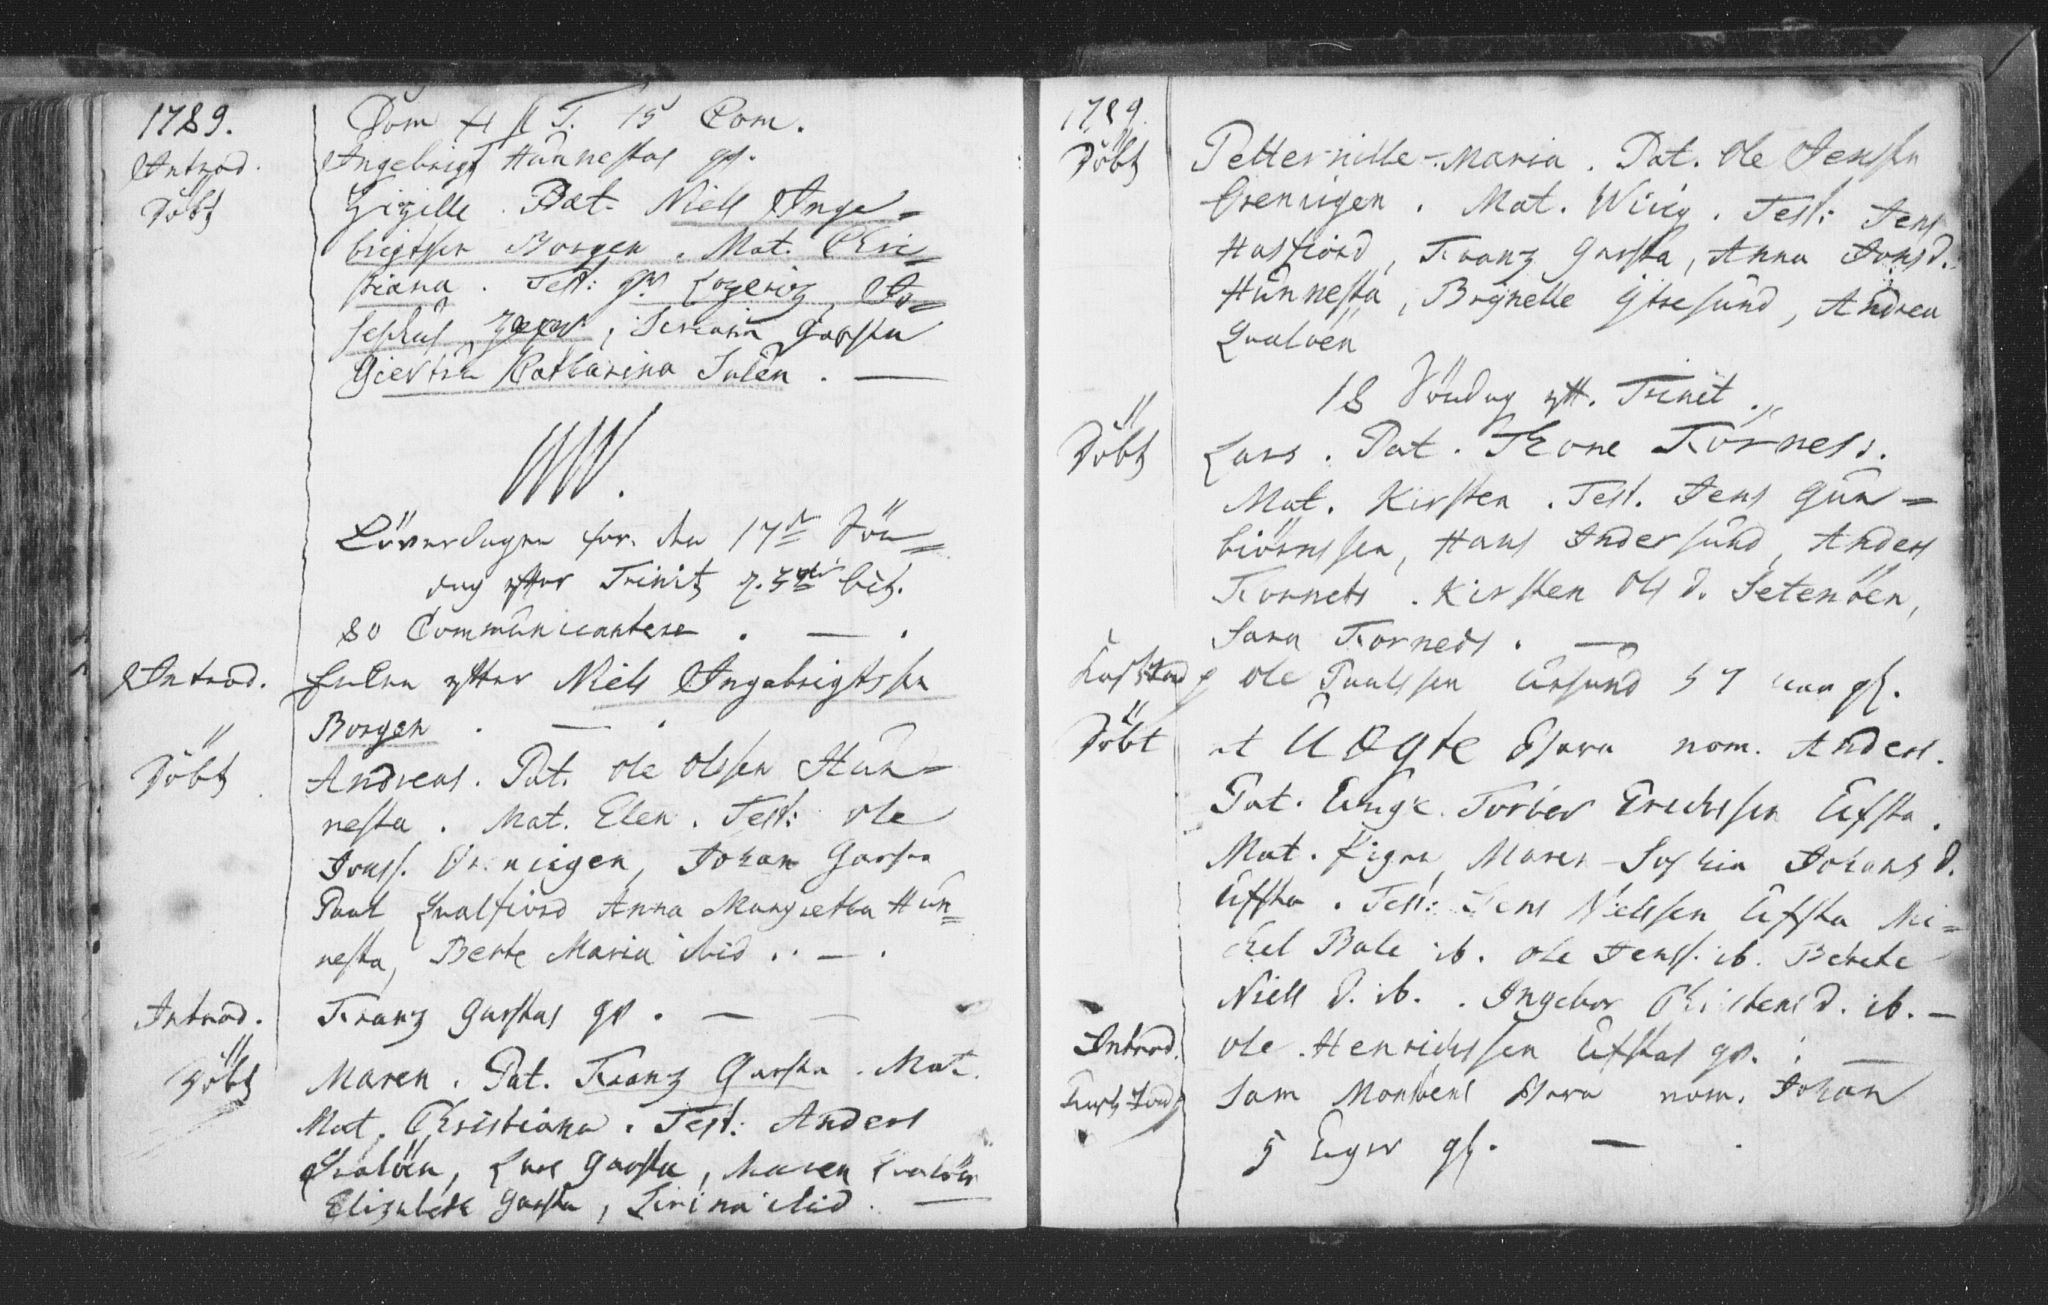 1789.
Dom 4 p T. 15 Com.
Introd. Ingebrigt Hünnestas
Döbt Zizille. Pat. Niels Inge=
brigtsen Borgen. Mat. Chri=
stiana. Test:
sephus Zar, Serina Garsta
Giertru Catharina Sulen. —
Löverdagen for den 17de Sön=
dag efter Trinit
80 Communicantere. — .
Introd. Enken efter Niels Ingebrigtssen
Borgen. — .
Döbt Andreas. Pat. Ole Olssen Hün=
nesta. Mat. Elen. Test: Ole
Jonss. Grønningen, Johan Garsta
Paul Qualfiord Anna Margretha Hün=
nesta, Berte Maria ibid. . — .
Introd. Franz Garstas . — —
Döbt Maren. Pat. Franz Garsta. Mat.
Mat. Christiana. Test: Anders
Qualöen, Lars Garsta, Maren Qualöen
Elizabeth Garsta, Sirina ibid. —
1789.
Döbt Petternille-Maria. Pat. Ole Jenssen
Grennigen. Mat. Wivig. Test: Jens
Hasfiord, Franz Garsta, Anna Jonsd.
Hünnesta, Brynelle Ytresund, Andrea
Qualöen
18 Söndag eft. Trinit.
Döbt Lars. Pat. Thore Körness.
Mat. Kirsten. Test. Jens Gun=
biörnssen, Hans Indersund, Anders
Kornets. Kirsten Ols d. Setenöen,
Sara Korneds. —
Ole Paulssen Ursund 57 aar gl.
Döbt et Uægte Barn nom. Anders.
Pat. Ungk. Torber Erichssen Ufsta.
Mat. Pigen Maren-Sophia Johans d.
Ufsta. Test: Jens Nielssen Ufsta Mi=
chel Bale ib. Ole Jenss. ib. Berete
Niels d. ib. . Ingebor Christens d. ib. —
Introd. Ole Henrichssen Ufstas . : —
Sam Monsens Barn nom. Johan
5 Uger gl. — .